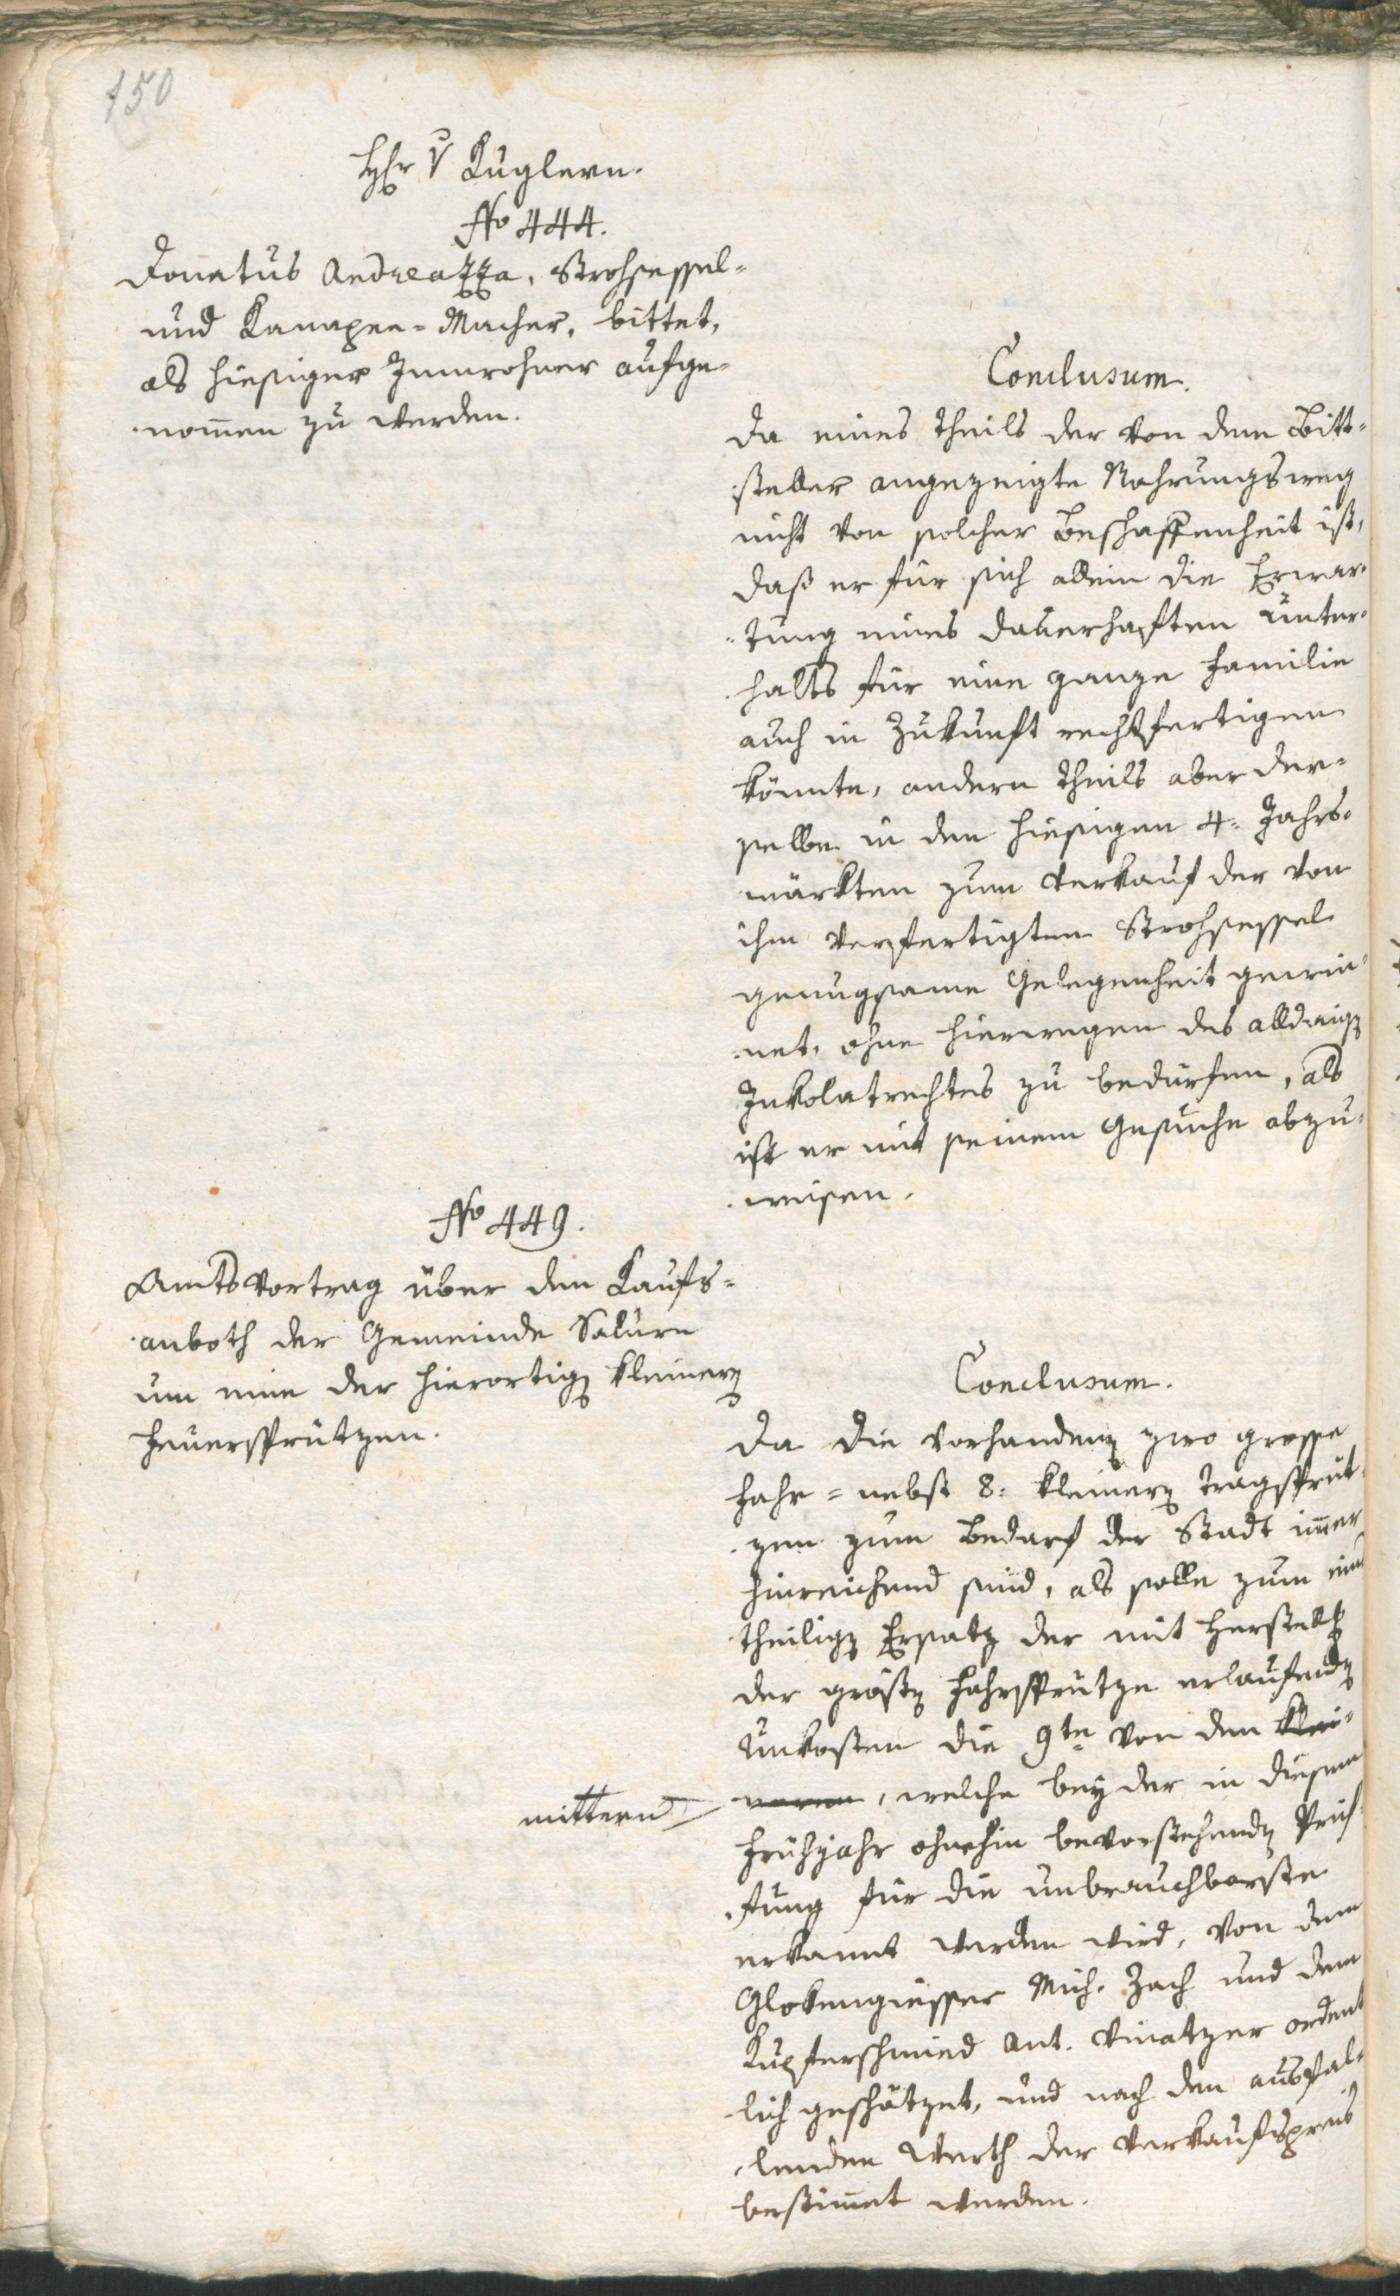 150
Hhr v Kuglern.
No 444.
Donatus Andreazza, Strohsessel=
und Kanapee=Macher, bittet,
als hiesiger Innwohner aufge-
nom̄en zu werden.
Conclusum.
Da eines theils der von dem Bitt-
steller angezeigte Nahrungsweg
nicht von solcher Beschaffenheit ist,
daß er für sich allein die Erwar-
tung eines dauerhaften Unter-
halts für eine ganze Familie
auch in Zukunft rechtfertigen
könnte, andern theils aber der-
selbe in den hiesigen 4. Jahrs-
märkten zum Verkauf der von
ihm verfertigten Strohsessel
genugsame Gelegenheit gewin-
net, ohne hierwegen des alldaig
Inkolatrechtes zu bedürfen, als
ist er mit seinem Gesuche abzu-
weisen.
No 449.
Amtsvortrag über den Kaufs=
anboth der Gemeinde Salurn
um eine der hierortig kleinern
Feuersprützen.
Conclusum.
Da die vorhanden zwo grosse
Fahr= nebst 8. kleinern Tragsprüt-
zen zum Bedarf der Stadt im̄er
hinreichend sind, als solle zum ein
theilig Ersatz der mit Herstellg
der größn Fahrsprütze erlaufendn
Unkosten die 9te von den klei-
mittern
neren, welche bey der in diesem
Frühjahr ohnehin bevorstehendn Prüf-
fung für die unbrauchbarste
erkannt werden wird, von dem
Glokengiesser Mich. Zach und dem
Kupferschmied Ant. Vinatzer ordent
lich geschätzet, und nach dem ausfal-
lenden Werth der Verkaufspreis
bestim̄et werden.